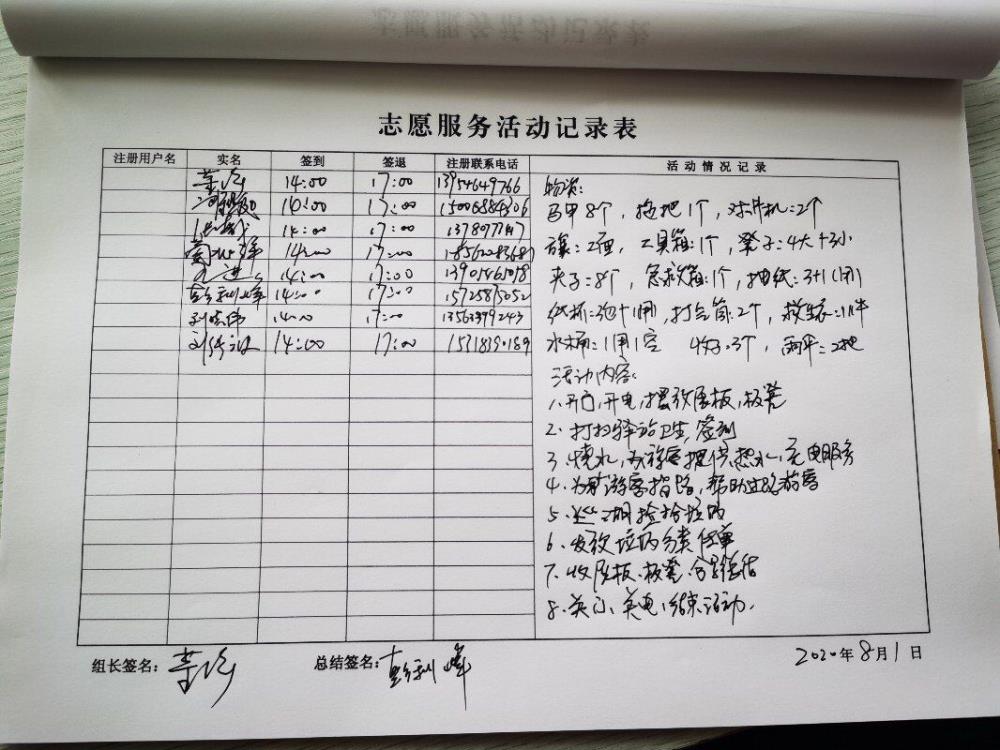 志愿服务活动记录表
注册用户名 实名 签到 签退 注册联系电话 活动情况记录
14:00 17:00 13954649766
14:00 17:00 15006884306
14:00 17:00
14:00 17:00
14:00 17:00 13905465018
彭利峰 14:00 17:00 15725875052
刘晓伟 14:00 17:00 13563399243
14:00 17:00
物资:
马甲8个, 拖把1个, 对讲机:2个
旗:2面, 工具箱:1个, 凳子:4大+3小
夹子:8个, 急救箱:1个, 抽纸:3+1(用)
纸杯:3包+1用, 打气筒:2个, 救生衣:1件
水桶:1用1空 3个, 雨伞:2把
活动内容:
1、开门,开电,摆放展板,板凳
2、打扫驿站卫生,签到
3、烧水,为游客提供热水,充电服务
4、为游客指路,帮助过路游客
5、巡湖捡拾垃圾
6、发放垃圾分类传单
7、收展板、板凳、合影总结
8、关门、关电、结束活动.
组长签名: 总结签名:彭利峰 2020年8月1日